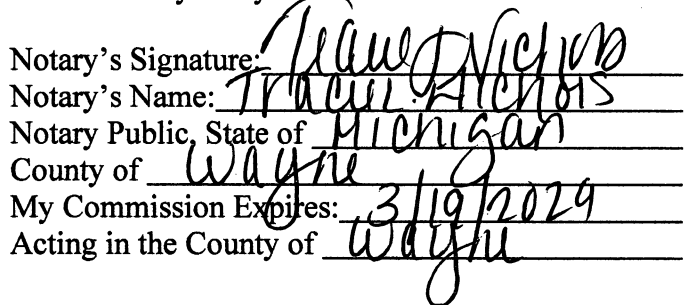 Notary's Signature:
Notary's Name: Nichols
Notary Public, State of Michigan
County of Wayne
My Commission Expires: 3/19/2029
Acting in the County of Wayne